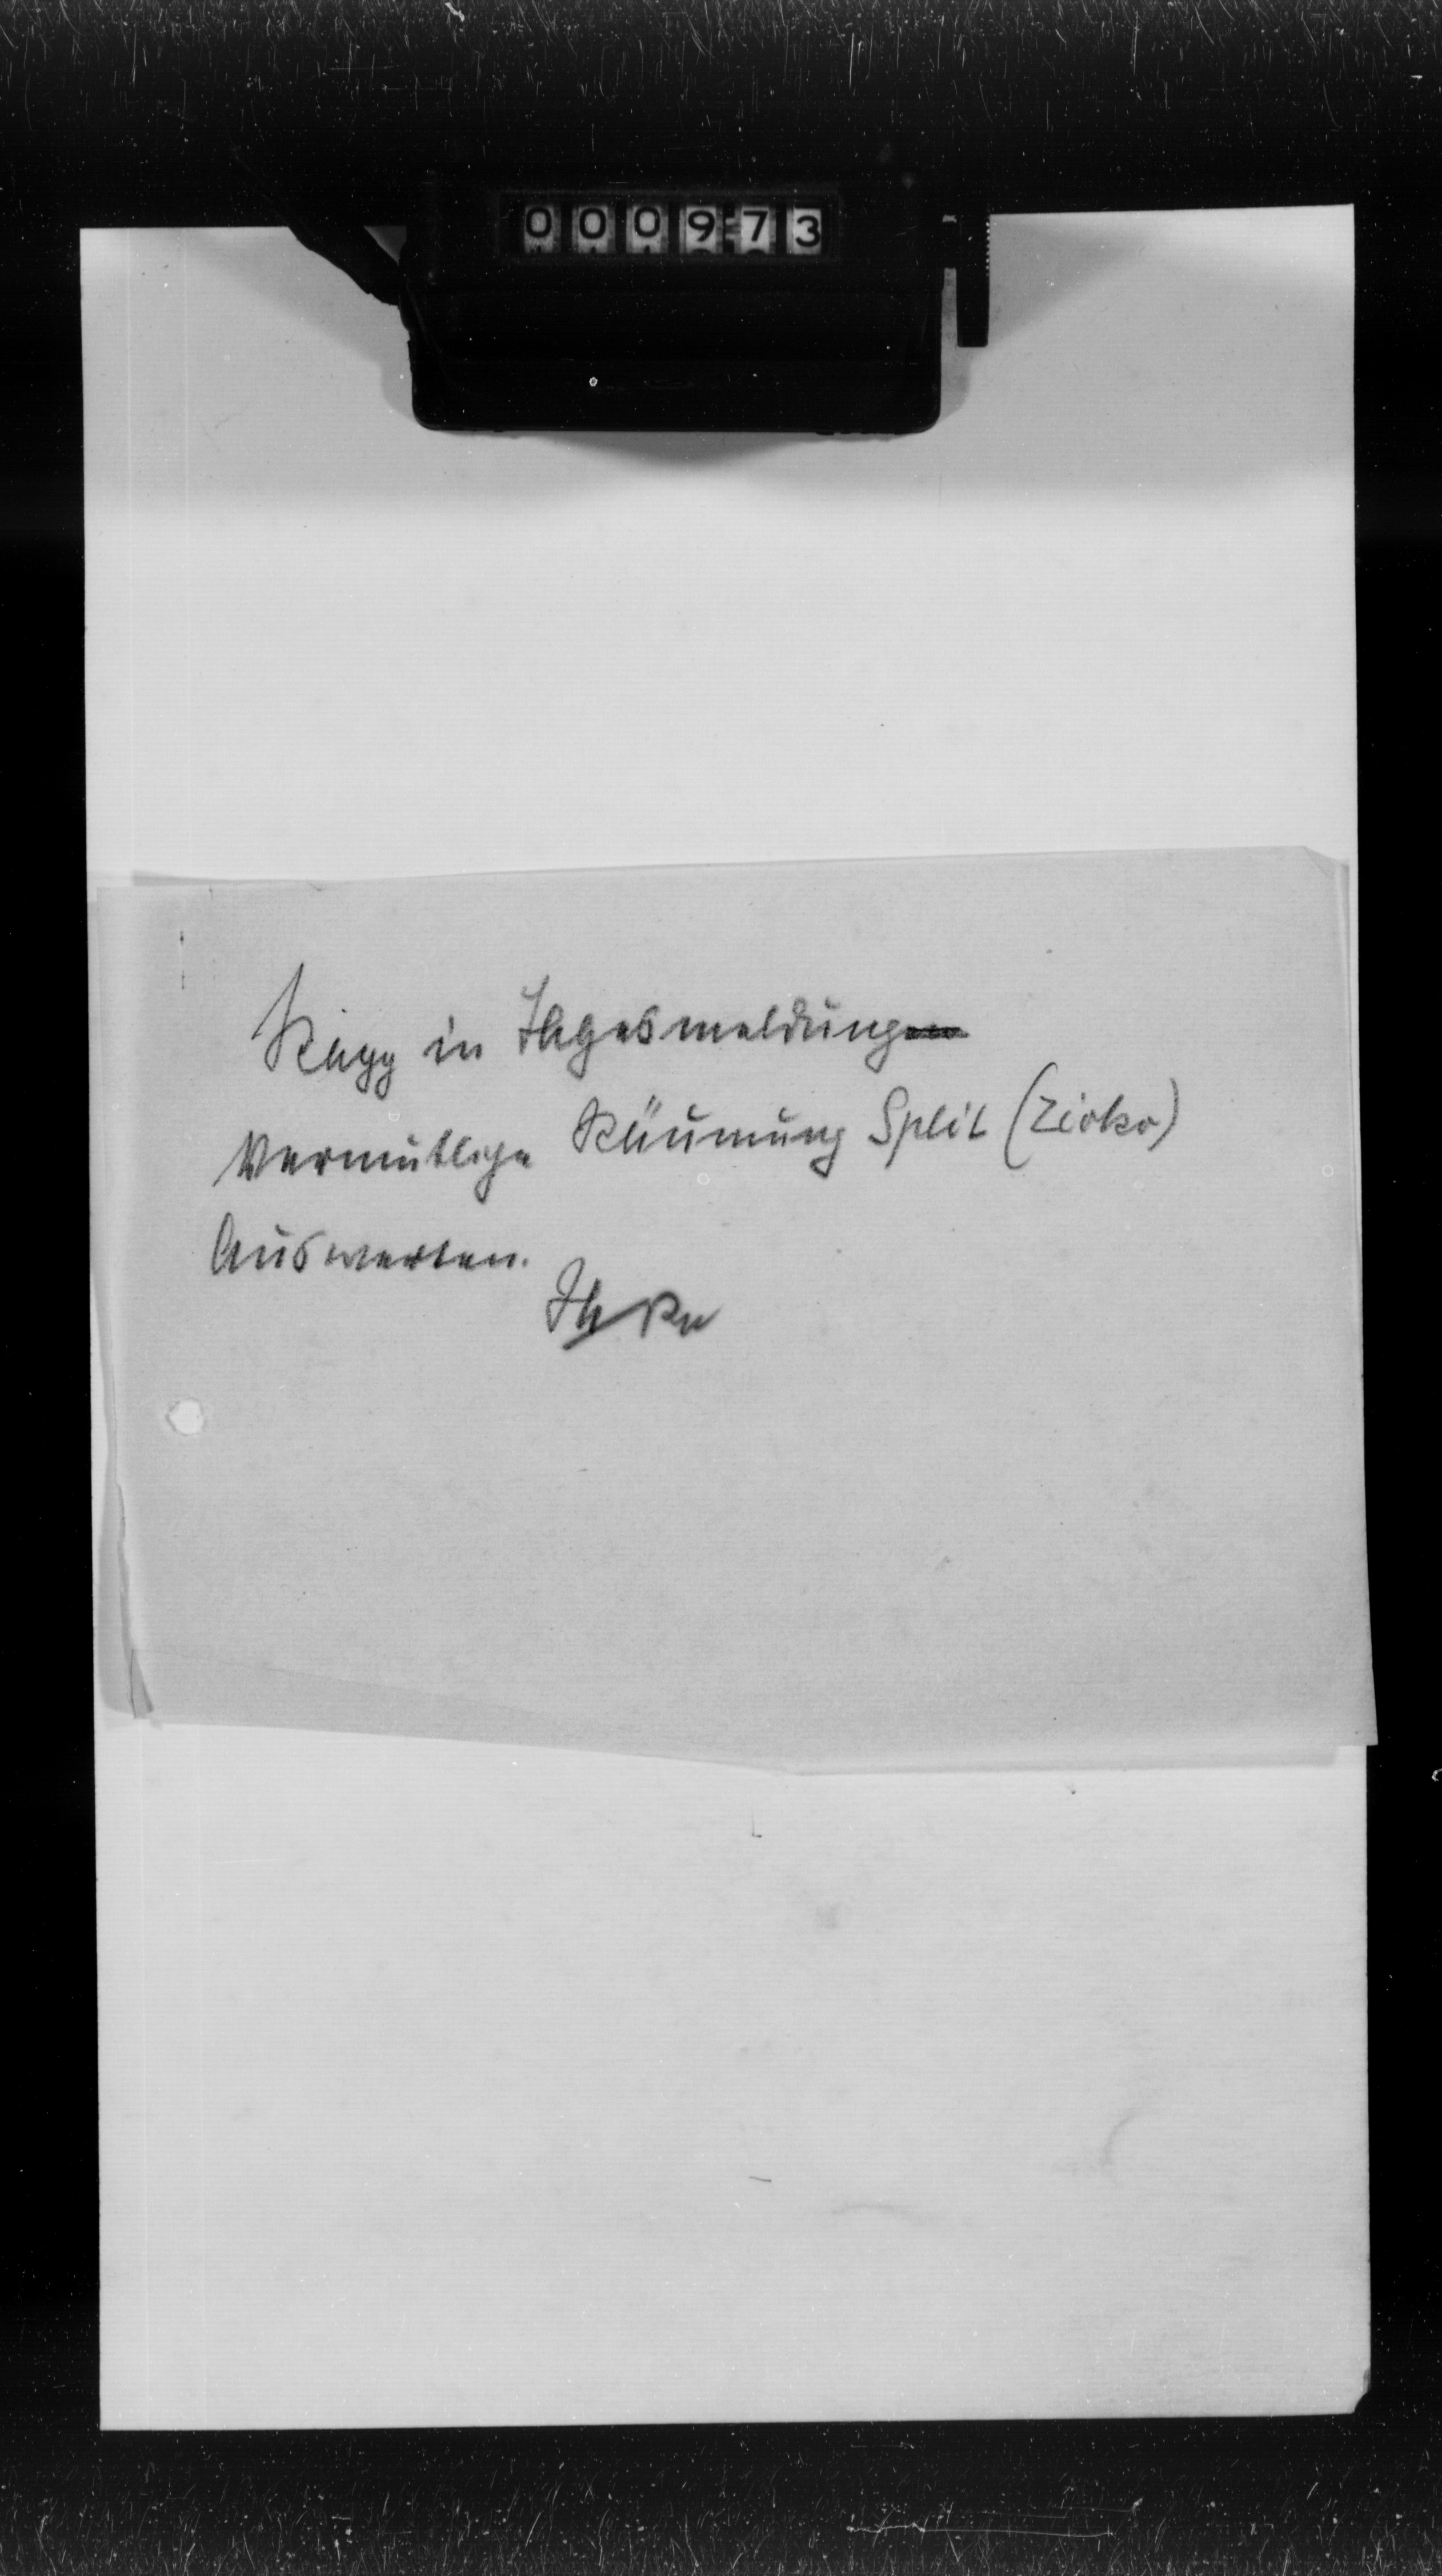 000973
in Tagesmeldung
Vermutliche Räumung Split (Zirko)
Auswerten.